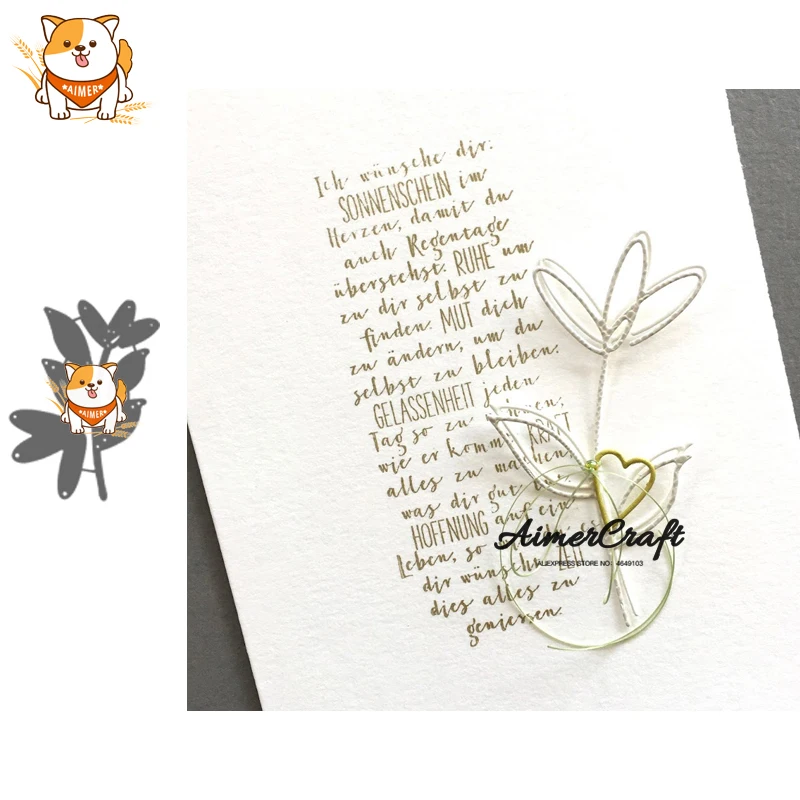 AIMER
Ich wünsche dir:
SONNENSCHEIN im
Herzen, damit du
auch Regentage
überstehst. RUHE um
zu dir selbst zu
finden. MUT dich
zu ändern, um du
selbst zu bleiben.
GELASSENHEIT jeden
Tag so zu
wie er kommt. KRAFT
alles zu machen,
was dir gut
HOFFNUNG auf ein
Leben, so
dir wünscht. ZEIT
dies alles zu
geniessen.
AIMER
AimerCraft
ALIEXPRESS STORE NO : 4649103